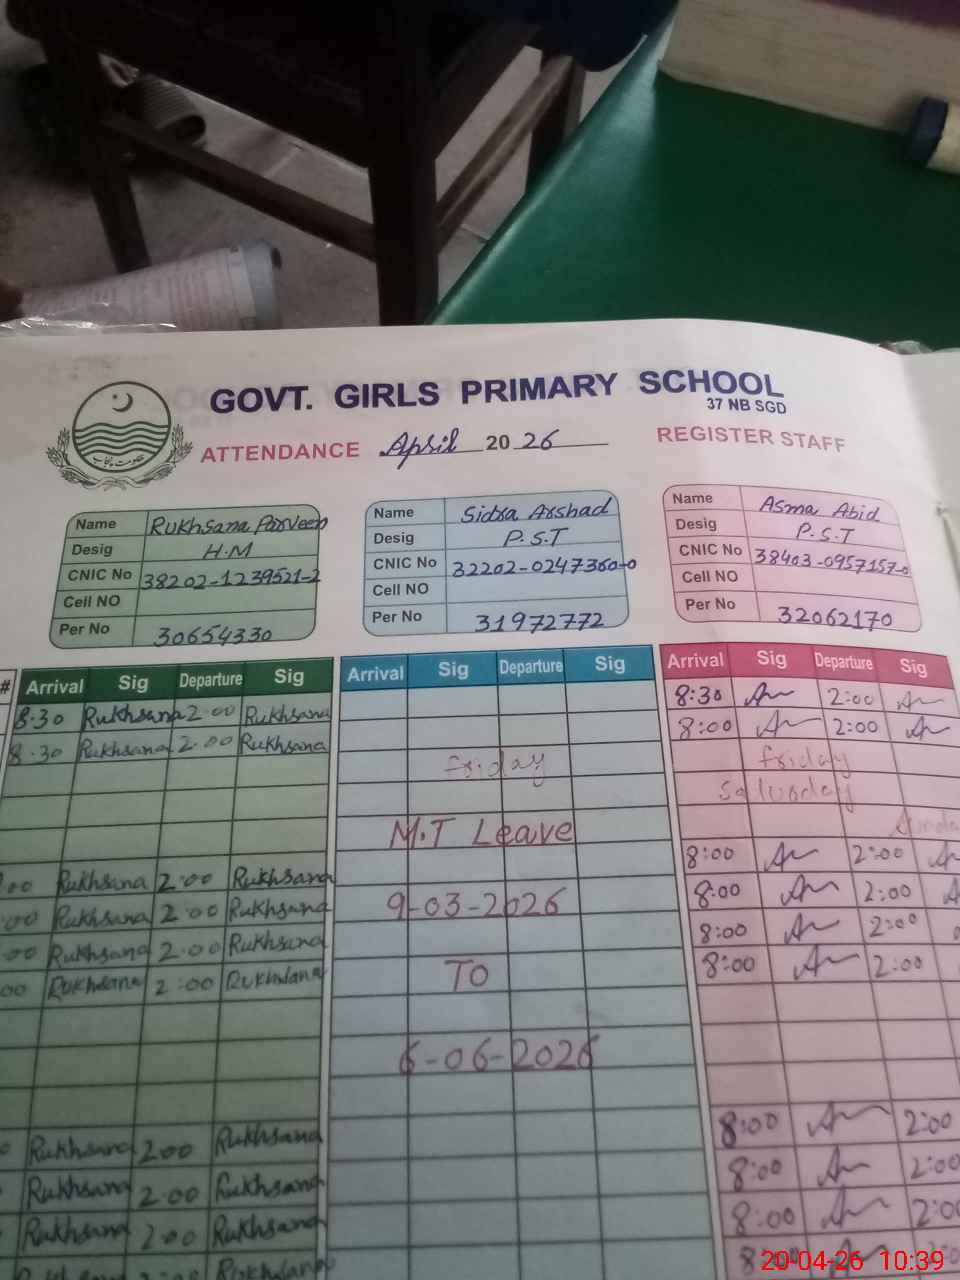 GOVT. GIRLS PRIMARY SCHOOL
37 NB SGD
ATTENDANCE April 20 26 REGISTER STAFF
حکومت پنجاب
Name Rukhsana Parveen
Desig H.M
CNIC No 38202-1239521-2
Cell NO
Per No 30654330
Name Sidra Arshad
Desig P.S.T
CNIC No 32202-0247360-0
Cell NO
Per No 31972772
Name Asma Abid
Desig P.S.T
CNIC No 38403-0957157-0
Cell NO
Per No 32062170
# Arrival Sig Departure Sig
8.30 Rukhsana 2.00 Rukhsana
8.30 Rukhsana 2.00 Rukhsana
:00 Rukhsana 2:00 Rukhsana
:00 Rukhsana 2:00 Rukhsana
:00 Rukhsana 2.00 Rukhsana
00 Rukhsana 2:00 Rukhsana
Rukhsana 2.00 Rukhsana
Rukhsana 2.00 Rukhsana
Rukhsana 2.00 Rukhsana
2:00 Rukhsana
Arrival Sig Departure Sig
Friday
M.T Leave
9-03-2026
To
6-06-2026
Arrival Sig Departure Sig
8:30 2:00
8:00 2:00
Friday
Saturday
8:00 2:00
8:00 2:00
8:00 2:00
8:00 2:00
8:00 2:00
8:00 2:00
8:00 2:0
20-04-26 10:39